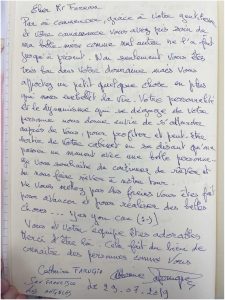 Cher Mr
Par où commencer, grâce à votre gentillesse
et votre connaissance vous avez pris soin de
ma belle-mère comme nul autre ne l'a fait
jusqu'à présent. Non seulement vous êtes
très bon dans votre domaine mais vous
apportez un petit quelque chose en plus
qui nous embellit la vie. Votre personnalité
et le dynamisme qui se dégage de votre
personne nous donne envie de s'
auprès de vous, pour profiter et peut-être
de votre cabinet en se disant qu'on
passe un moment avec une belle personne.
Je vous souhaite de continuer de rêver et
de nous faire rêver à notre tour...
Ne vous mettez pas des freins vous êtes fait
pour avancer et pour réaliser des belles
choses... Yes you can (:-)
Vous et votre équipe êtes adorables
Merci d'être là. Cela fait du bien de
connaître des personnes comme vous
Catherine FARUGIA
San Francisco
Los ANGELES
le 29.07.2019